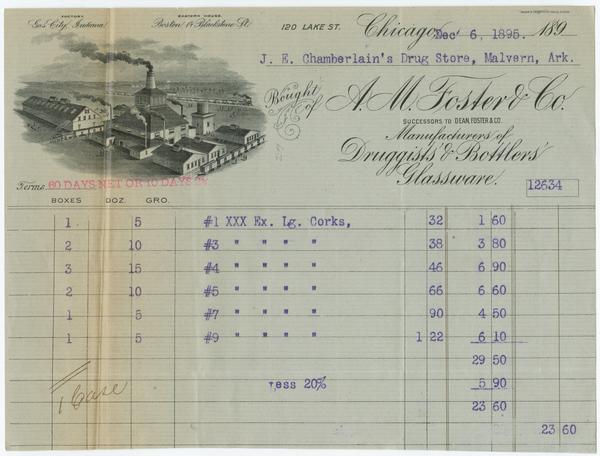 FACTORY,
Gas City, Indiana.
EASTERN HOUSE,
Boston 14 Blackstone St.
120 LAKE ST.
Chicago, Dec 6, 1895. 189
J. E. Chamberlain's Drug Store, Malvern, Ark.
Bought of A. M. Foster & Co.
SUCCESSORS TO DEAN, FOSTER & CO.
Manufacturers of
Druggists' & Bottlers'
Glassware.
Terms. 60 DAYS NET OR 10 DAYS
12634
BOXES DOZ. GRO.
1 5 #1 XXX Ex. Lg. Corks, 32 1 60
2 10 #3 " " " " 38 3 80
3 15 #4 " " " " 46 6 90
2 10 #5 " " " " 66 6 60
1 5 #7 " " " " 90 4 50
1 5 #9 " " " " 1 22 6 10
29 50
Less 20% 5 90
23 60
23 60
1 Case